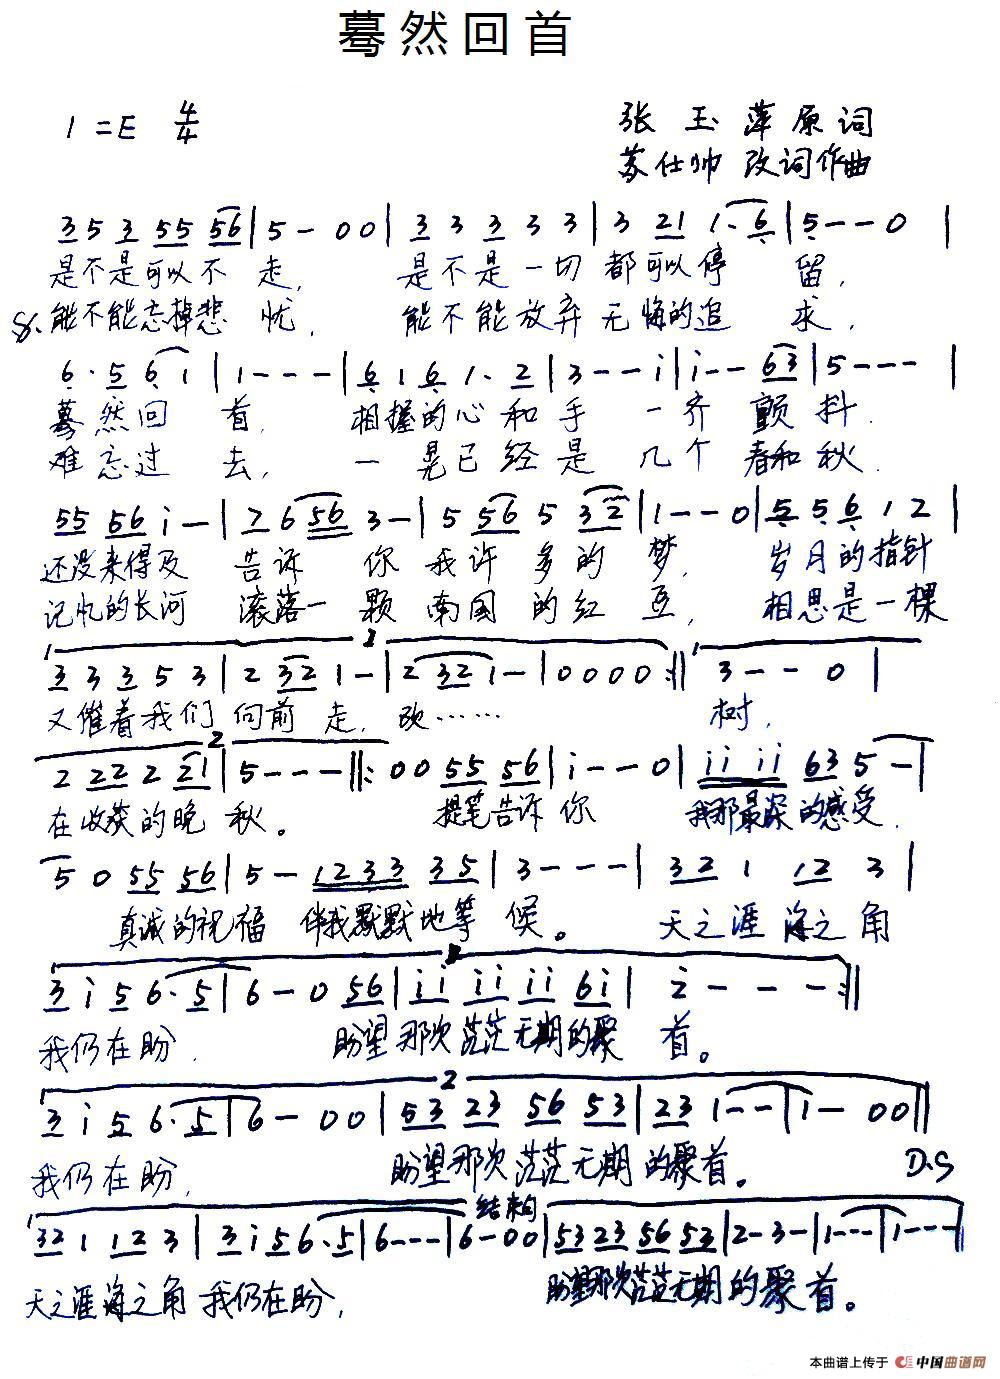 蓦然回首
1=E 4/4
张玉萍原词
苏仕帅 改词作曲
3 5 3 55 56 | 5 - 0 0 | 3 3 3 3 3 | 3 21 1. 6 | 5 - - 0 |
是不是可以不走, 是不是一切都可以停留,
能不能忘掉悲忧, 能不能放弃无悔的追求,
6. 5 6 1 | 1 - - - | 6 1 6 1. 2 | 3 - - i | i - - 63 | 5 - - - |
蓦然回首, 相握的心和手一齐颤抖.
难忘过去, 一晃已经是几个春和秋.
55 56 i - | 7 6 56 3 - | 5 56 5 32 | 1 - - 0 | 5 5 6 1 2 |
还没来得及告诉你我许多的梦, 岁月的指针
记忆的长河滚落一颗南国的红豆, 相思是一棵
1 2
3 3 3 5 3 | 2 32 1 - | 2 32 1 - | 0 0 0 0 :|| 3 - - 0 |
又催着我们向前走. 改…… 树,
2
2 22 2 21 | 5 - - - ||: 0 0 55 56 | i - - 0 | ii ii 63 5 - |
在收获的晚秋。 提笔告诉你 我那最深的感受,
5 0 55 56 | 5 - 1233 35 | 3 - - - | 32 1 12 3 |
真诚的祝福 伴我默默地等候。 天之涯海之角
3 i 5 6. 5 | 6 - 0 56 | ii ii ii 6i | 2 - - - :||
我仍在盼, 盼望那次茫茫无期的聚首。
2
3 i 5 6. 5 | 6 - 0 0 | 53 23 56 53 | 23 1 - - | 1 - 0 0 ||
我仍在盼, 盼望那次茫茫无期的聚首。 D.S
结束句
32 1 12 3 | 3 i 5 6. 5 | 6 - - - | 6 - 0 0 | 53 23 56 53 | 2 - 3 - | 1 - - - | 1 - - - |
天之涯海之角我仍在盼, 盼望那次茫茫无期的聚首。
本曲谱上传于 中国曲谱网